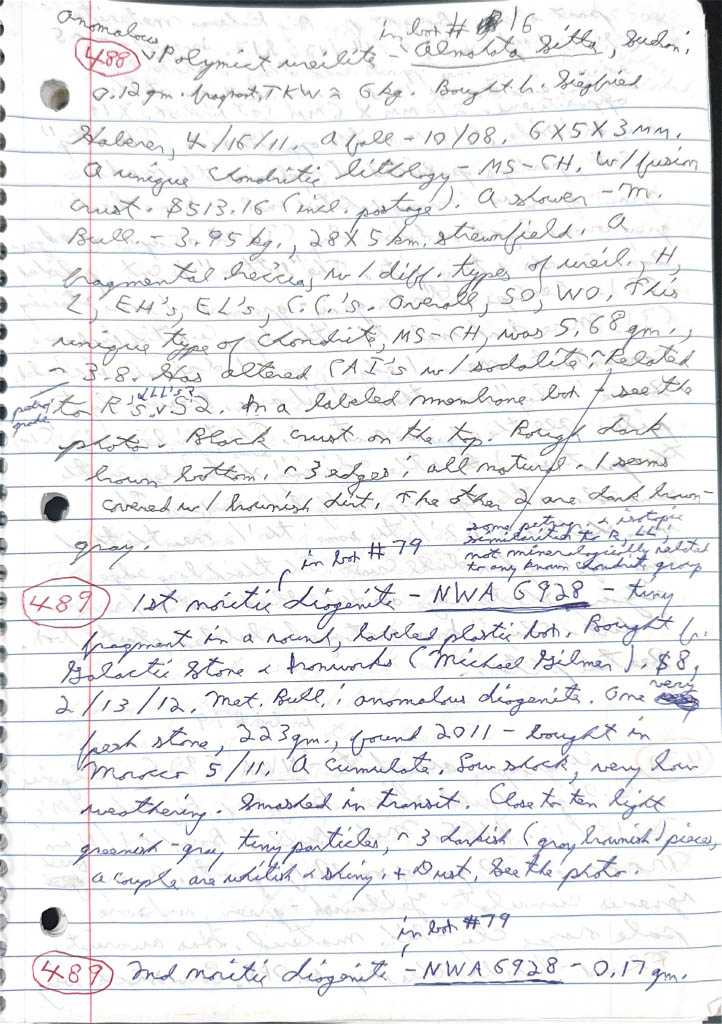 in box # 16
anomalous
488 Polymict ureilite - Almahata Sitta, Sudan;
0.12 gm. fragment, TKW ≈ 6 kg. Bought fr. Siegfried
Haberer, 4/16/11. A fall - 10/08. 6 X 5 X 3 MM.
A unique chondritic lithology - MS-CH. W/fusion
crust. $513.16 (incl. postage). A shower - M.
Bull. - 3.95 kg., 28 X 5 km. strewnfield. A
fragmental breccia, w/ diff. types of ureil., H,
L, EH's, EL's, C.C.'s. Overall, S0, W0. This
unique type of chondrite, MS-CH, was 5.68 gm.,
~ 3.8. Has altered CAI's w/ sodalite. ~ Related
to R's, & LL's? S2. In a labeled membrane box - see the
petrog. grade
photo. Black crust on the top. Rough dark
brown bottom. ~ 3 edges; all natural. 1 seems
covered w/ brownish dirt. The other 2 are dark brown-
gray.
some petrog. & isotopic
similarities to R, LL;
not mineralogically related
to any known chondrite group
in box # 79
489 1st moitié diogenite - NWA 6928 - tiny
fragment in a round, labeled plastic box. Bought fr.
Galactic Stone & Ironworks (Michael Gilmer). $8,
2/13/12. Met. Bull.: anomalous diogenite. One very
fresh stone, 223 gm., found 2011 - bought in
Morocco 5/11. A cumulate. Low shock, very low
weathering. Smashed in transit. Close to ten light
greenish-gray tiny particles, ~ 3 darkish (gray brownish) pieces,
a couple are whitish & shiny. + Dust. See the photo.
in box #79
489 2nd moitié diogenite - NWA 6928 - 0.17 gm.